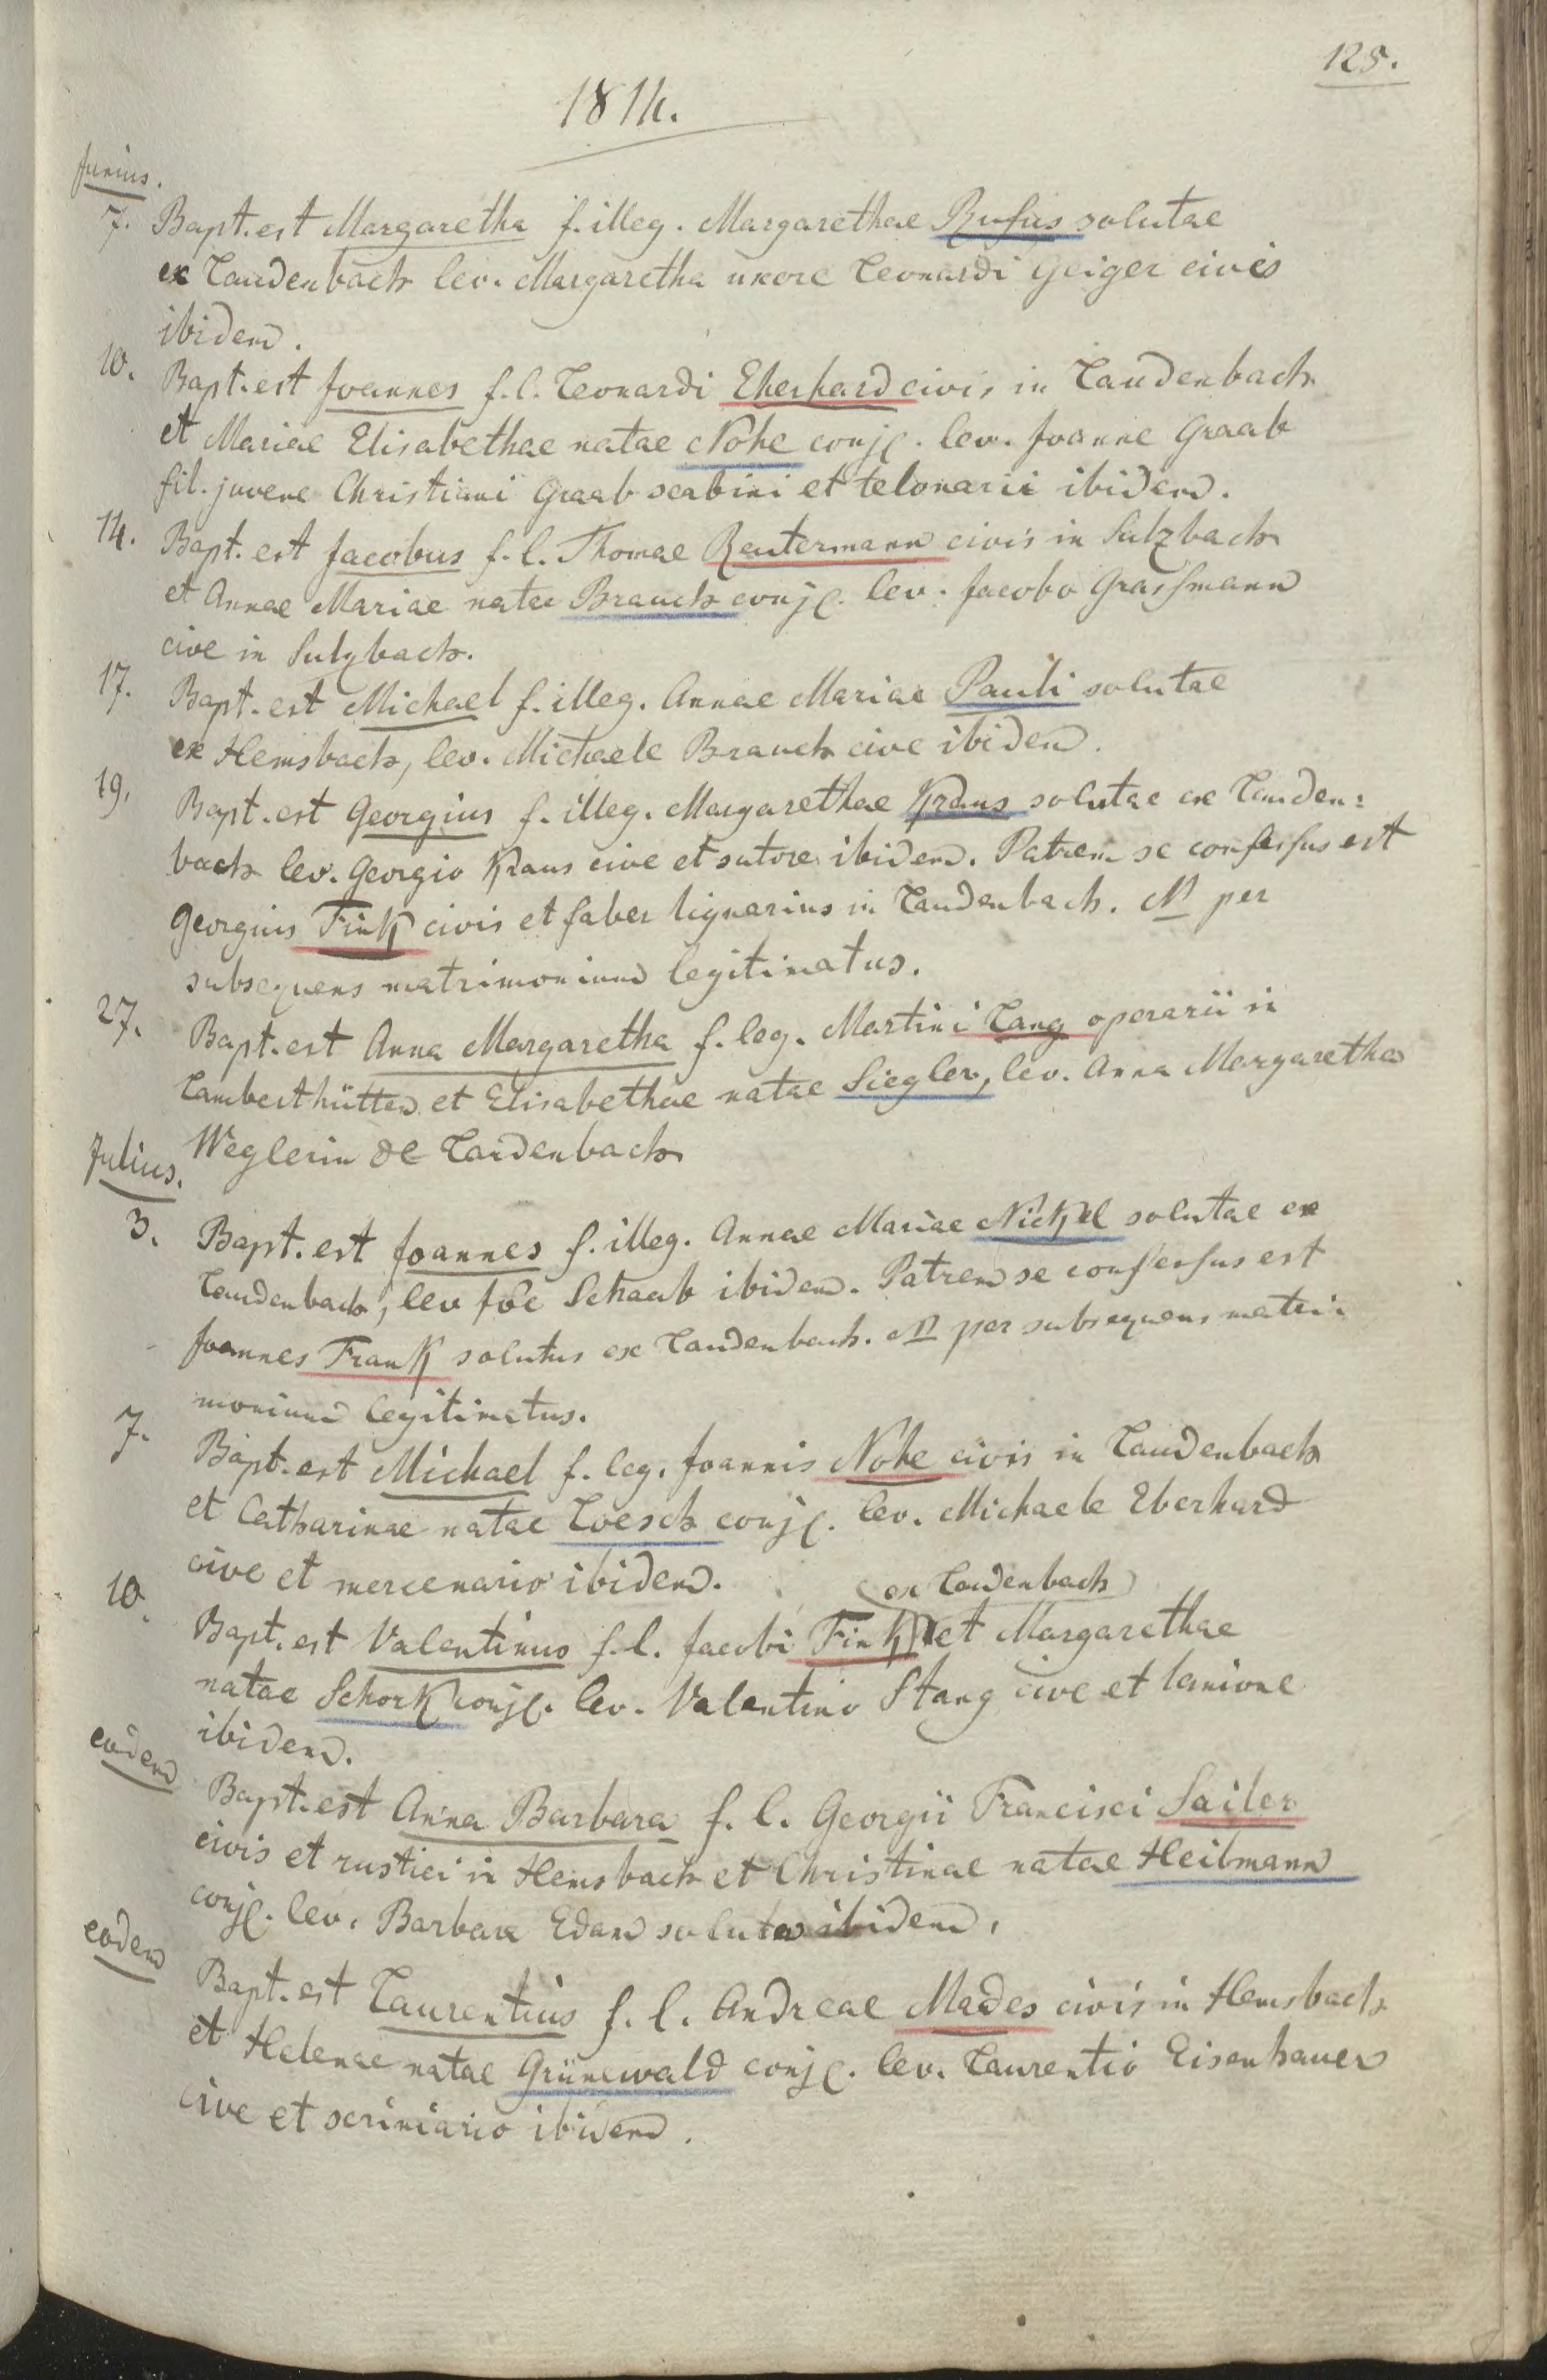 125.
1814.
Junius.
7. Bapt. est Margaretha f. illeg. Margarethae Rufus solutae
ex Laudenbach lev. Margaretha uxore Leonardi Geiger civis
ibidem.
10. Bapt. est Joannes f. l. Leonardi Eberhard civis in Laudenbach
et Mariae Elisabethae natae Nohe conj. lev. Joanne Graab
fil. juvene Christiani Graab scabini et telonarii ibidem.
14. Bapt. est Jacobus f. l. Thomae Reutermann civis in Sulzbach
et Annae Mariae natae Brauch conj. lev. Jacobo Grassmann
cive in Sulzbach.
17. Bapt. est Michael f. illeg. Annae Mariae Pauli solutae
ex Hemsbach, lev. Michaele Brauch cive ibidem.
19. Bapt. est Georgius f. illeg. Margarethae Kraus solutae ex Lauden:
bach lev. Georgio Kraus cive et sutore ibidem. Patrem se confessus est
Georgius Fink civis et faber lignarius in Laudenbach. N per
subsequens matrimonium legitimatus.
27. Bapt. est Anna Margaretha f. leg. Martini Lang operarii in
Lamberthütten et Elisabethae natae Siegler, lev. Anna Margaretha
Weglerin de Laudenbach
Julius.
3. Bapt. est Joannes f. illeg. Annae Mariae Nickel solutae ex
Laudenbach, lev Joe Schaab ibidem. Patrem se confessus est
Joannes Frank solutus ex Laudenbach. N per subsequens matri:
monium legitimatus.
7. Bapt. est Michael f. leg. Joannis Nohe civis in Laudenbach
et Catharinae natae Loesch conj. lev. Michaele Eberhard
cive et mercenario ibidem.
ex Laudenbach
10. Bapt. est Valentinus f. l. Jacobi Fink et Margarethae
natae Schork conj. lev. Valentino Stang cive et lanione
ibidem.
eodem Bapt. est Anna Barbara f. l. Georgii Francisci Sailer
civis et rustici in Hemsbach et Christinae natae Heilmann
conj. lev. Barbara Edam soluta ibidem.
eodem Bapt. est Laurentius f. l. Andreae Mades civis in Hemsbach
et Helenae natae Grünewald conj. lev. Laurentio Eisenhauer
cive et scriniario ibidem.